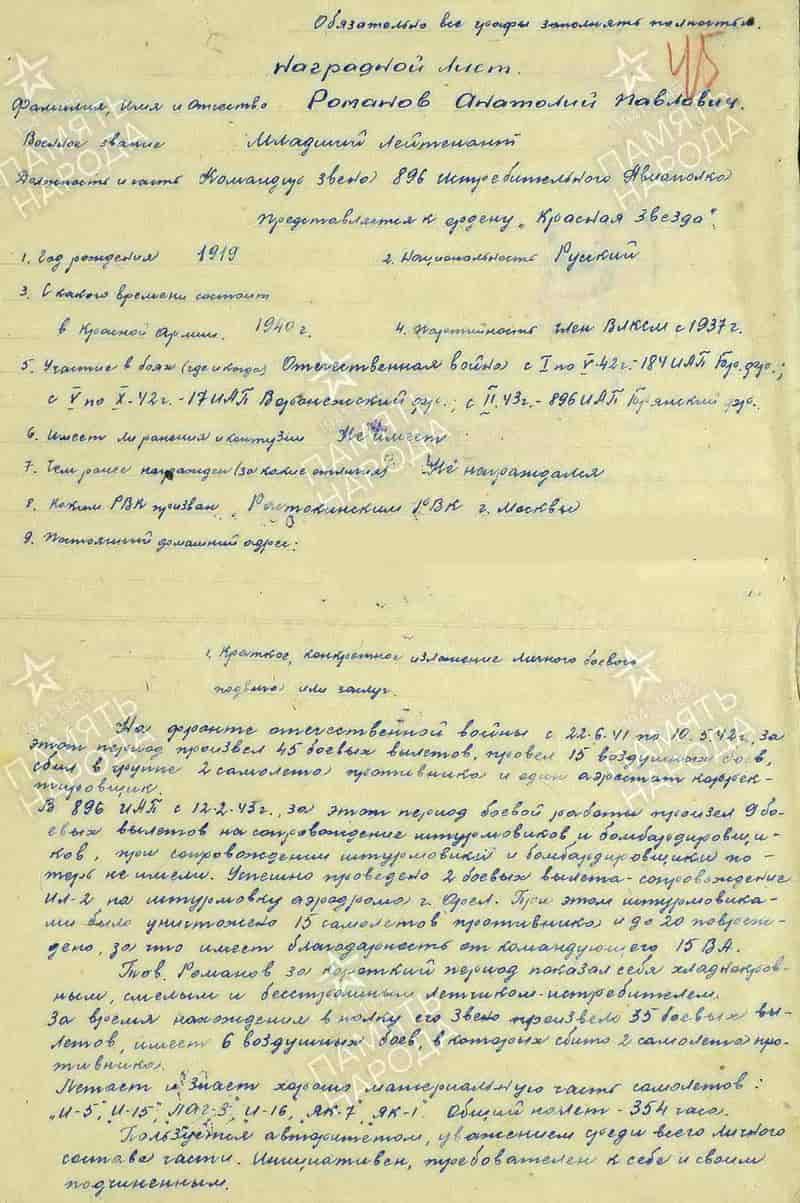 Обязательно все графы заполнять полностью.
45
Наградной лист.
Фамилия, имя и отчество Романов Анатолий Павлович.
Военное звание Младший Лейтенант
Должность и часть Командир звена 896 Истребительного Авиаполка
Представляется к ордену „Красная Звезда".
1. Год рождения 1919 2. Национальность Русский
3. С какого времени состоит
в Красной Армии. 1940 г. 4. Партийность член ВЛКСМ с 1937 г.
5. Участие в боях (где и когда) Отечественная война с I по V-42 г. - 184 ИАП Бр. фр.;
с V по X-42 г. - 17 ИАП Воронежский фр.; с II.43 г. - 896 ИАП Брянский фр.
6. Имеет ли ранения и контузии Не имеет
7. Чем ранее награжден (за какие отличия) Не награждался
8. Каким РВК призван Ростокинским РВК г. Москвы
9. Постоянный домашний адрес:
1. Краткое, конкретное изложение личного боевого
подвига или заслуг.
На фронте отечественной войны с 22.6.41 по 10.5.42 г., за
этот период произвел 45 боевых вылетов, провел 15 воздушных боев,
сбил в группе 2 самолета противника и один аэростат коррек-
тировщик.
В 896 ИАП с 12-2-43 г., за этот период боевой работы произвел 9 бо-
евых вылетов на сопровождение штурмовиков и бомбардировщи-
ков, при сопровождении штурмовики и бомбардировщики по-
терь не имели. Успешно проведено 2 боевых вылета-сопровождение
Ил-2 на штурмовку аэродрома г. Орел. При этом штурмовика-
ми было уничтожено 15 самолетов противника и до 20 повреж-
дено, за что имеет благодарность от командующего 15 ВА.
Тов. Романов за короткий период показал себя хладнокров-
ным, смелым и бесстрашным летчиком-истребителем.
За время нахождения в полку его звено произвело 35 боевых вы-
летов, имеет 6 воздушных боев, в которых сбито 2 самолета про-
тивника.
Летает и знает хорошо материальную часть самолетов:
„И-5", И-15", ЛАГ-3", И-16, ЯК-7", ЯК-1". Общий налет - 354 часа.
Пользуется авторитетом, уважением среди всего личного
состава части. Инициативен, требователен к себе и своим
подчиненным.
ПАМЯТЬ
НАРОДА